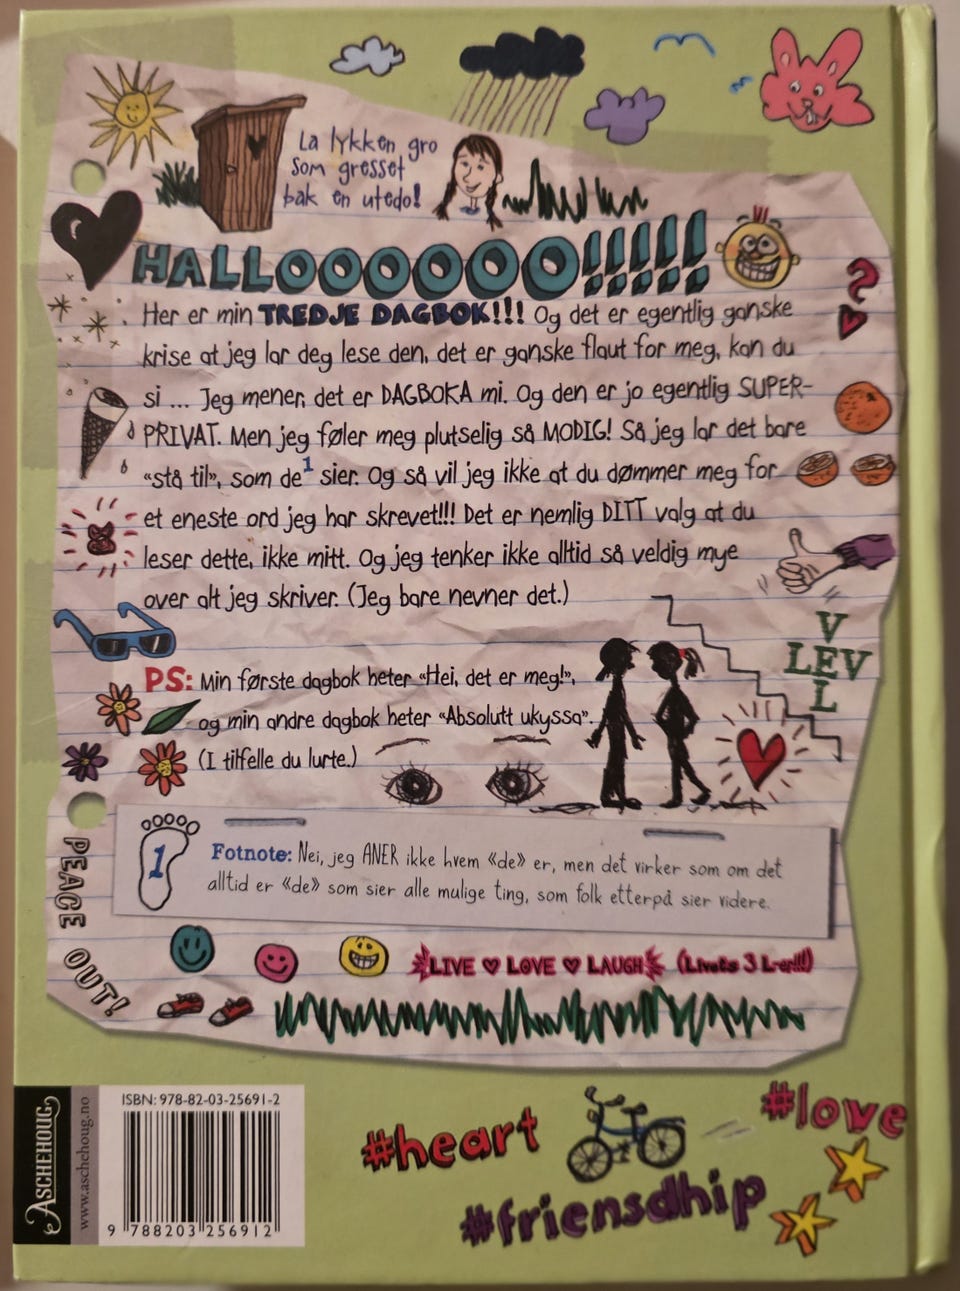 La lykken gro
som gresset
bak en utedo!
HALLOOOOOO!!!!!
Her er min TREDJE DAGBOK!!! Og det er egentlig ganske
krise at jeg lar deg lese den, det er ganske flaut for meg, kan du
si ... Jeg mener, det er DAGBOKA mi. Og den er jo egentlig SUPER-
PRIVAT. Men jeg føler meg plutselig så MODIG! Så jeg lar det bare
«stå til», som de1 sier. Og så vil jeg ikke at du dømmer meg for
et eneste ord jeg har skrevet!!! Det er nemlig DITT valg at du
leser dette, ikke mitt. Og jeg tenker ikke alltid så veldig mye
over alt jeg skriver. (Jeg bare nevner det.)
V
LEV
L
PS: Min første dagbok heter «Hei, det er meg!»,
og min andre dagbok heter «Absolutt ukyssa».
(I tilfelle du lurte.)
1
Fotnote: Nei, jeg ANER ikke hvem «de» er, men det virker som om det
alltid er «de» som sier alle mulige ting, som folk etterpå sier videre.
PEACE OUT!
LIVE ♥ LOVE ♥ LAUGH (Livets 3 L-er!!!)
ASCHEHOUG
www.aschehoug.no
ISBN: 978-82-03-25691-2
9 788203 256912
#heart
#love
#friensdhip